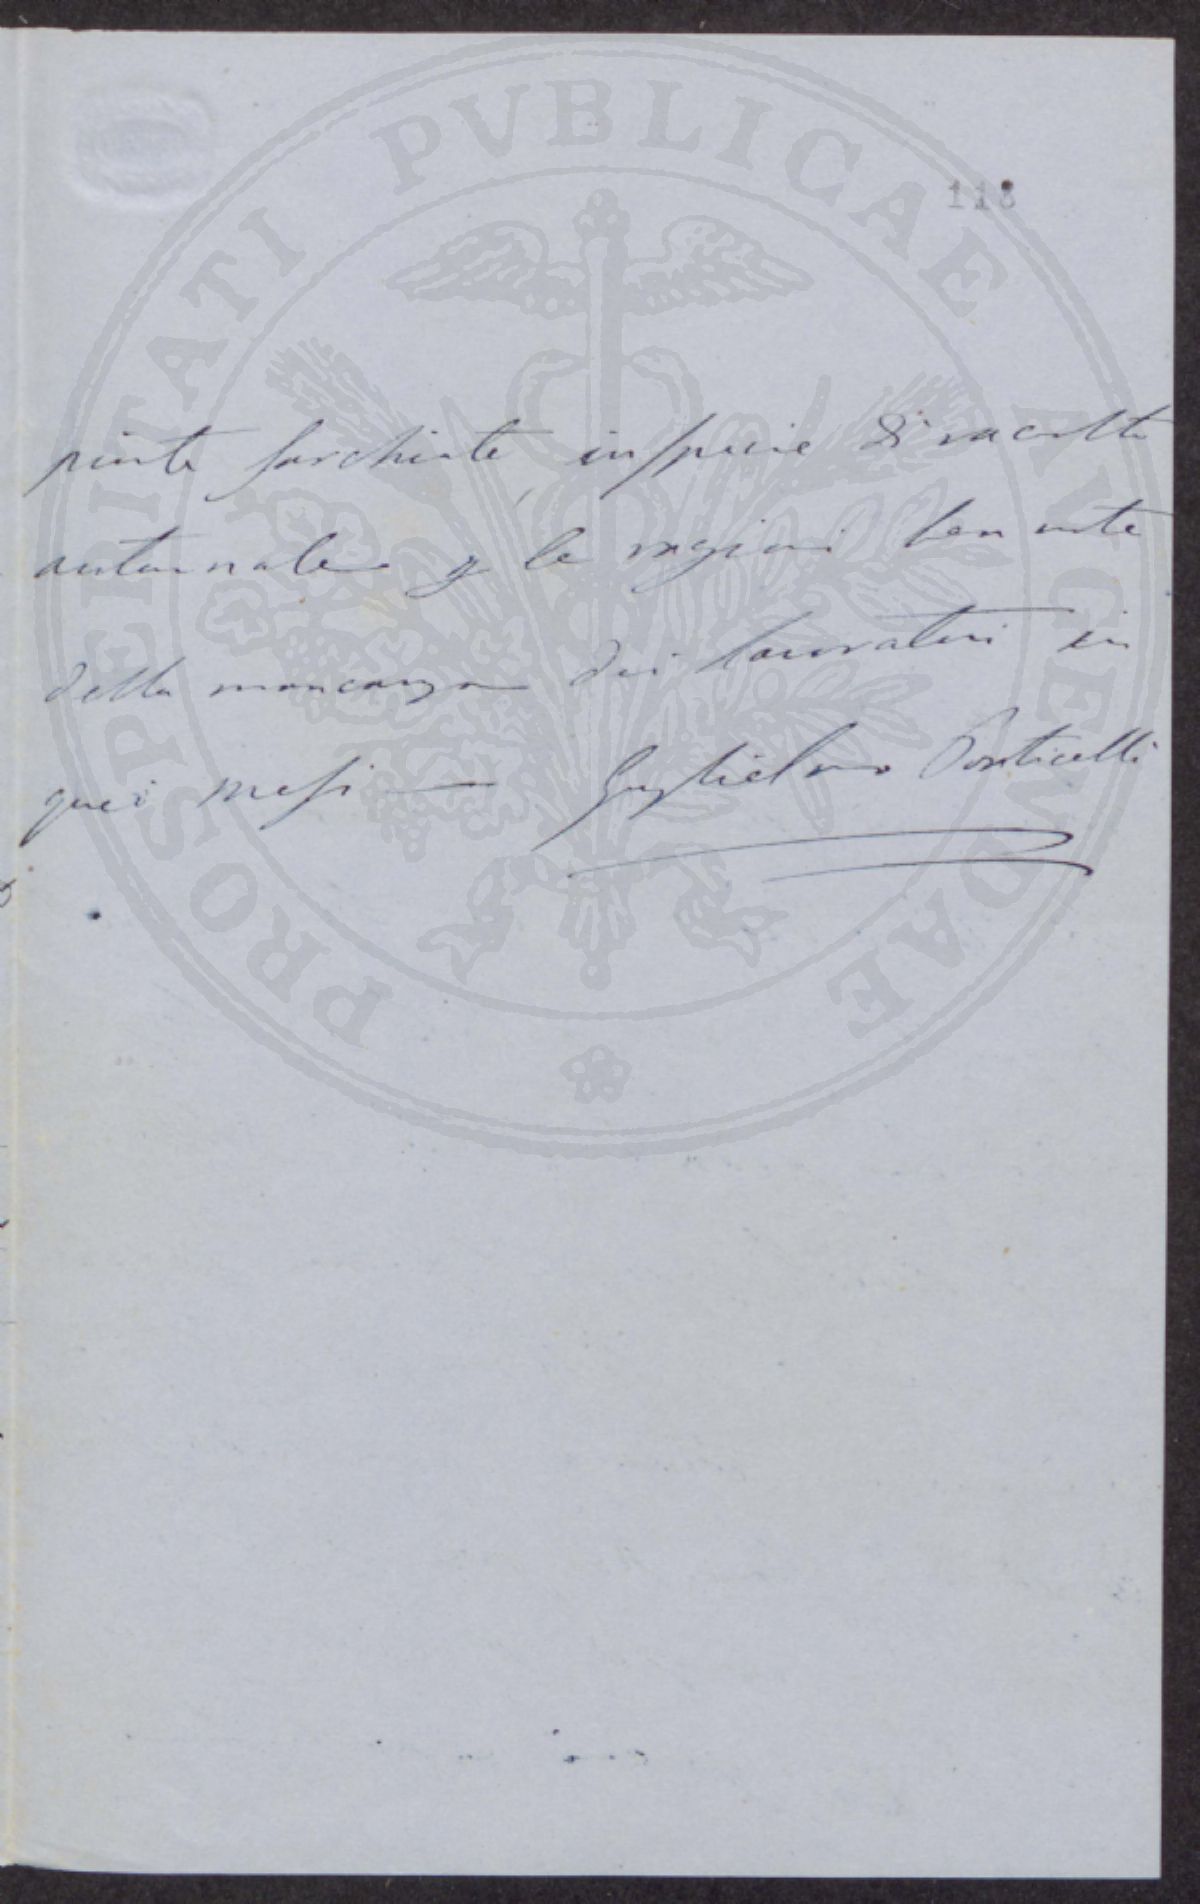 PROSPERITATI PVBLICAE AVGENDAE
118
piante sarchiate in specie di raccolta
autunnale p le ragioni ben note
della mancanza dei lavoratori in
quei mesi — Guglielmo Ponticelli